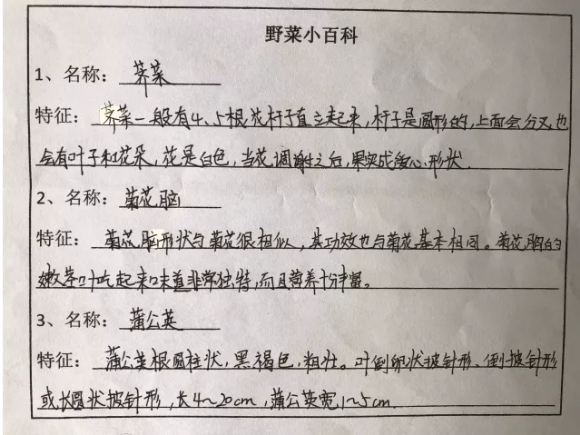 野菜小百科
1、名称：荠菜
特征：荠菜一般有4、5根花杆子直立起来，杆子是圆形的，上面会分叉也
会有叶子和花朵，花是白色，当花凋谢之后，果实成爱心形状.
2、名称：菊花脑
特征：菊花脑形状与菊花很相似，其功效也与菊花基本相同。菊花脑的
嫩茎叶吃起来味道非常独特，而且营养十分丰富。
3、名称：蒲公英
特征：蒲公英根圆柱状，黑褐色，粗壮。叶倒卵状披针形、倒披针形
或长圆状披针形，长4～20cm，蒲公英宽1～5cm.